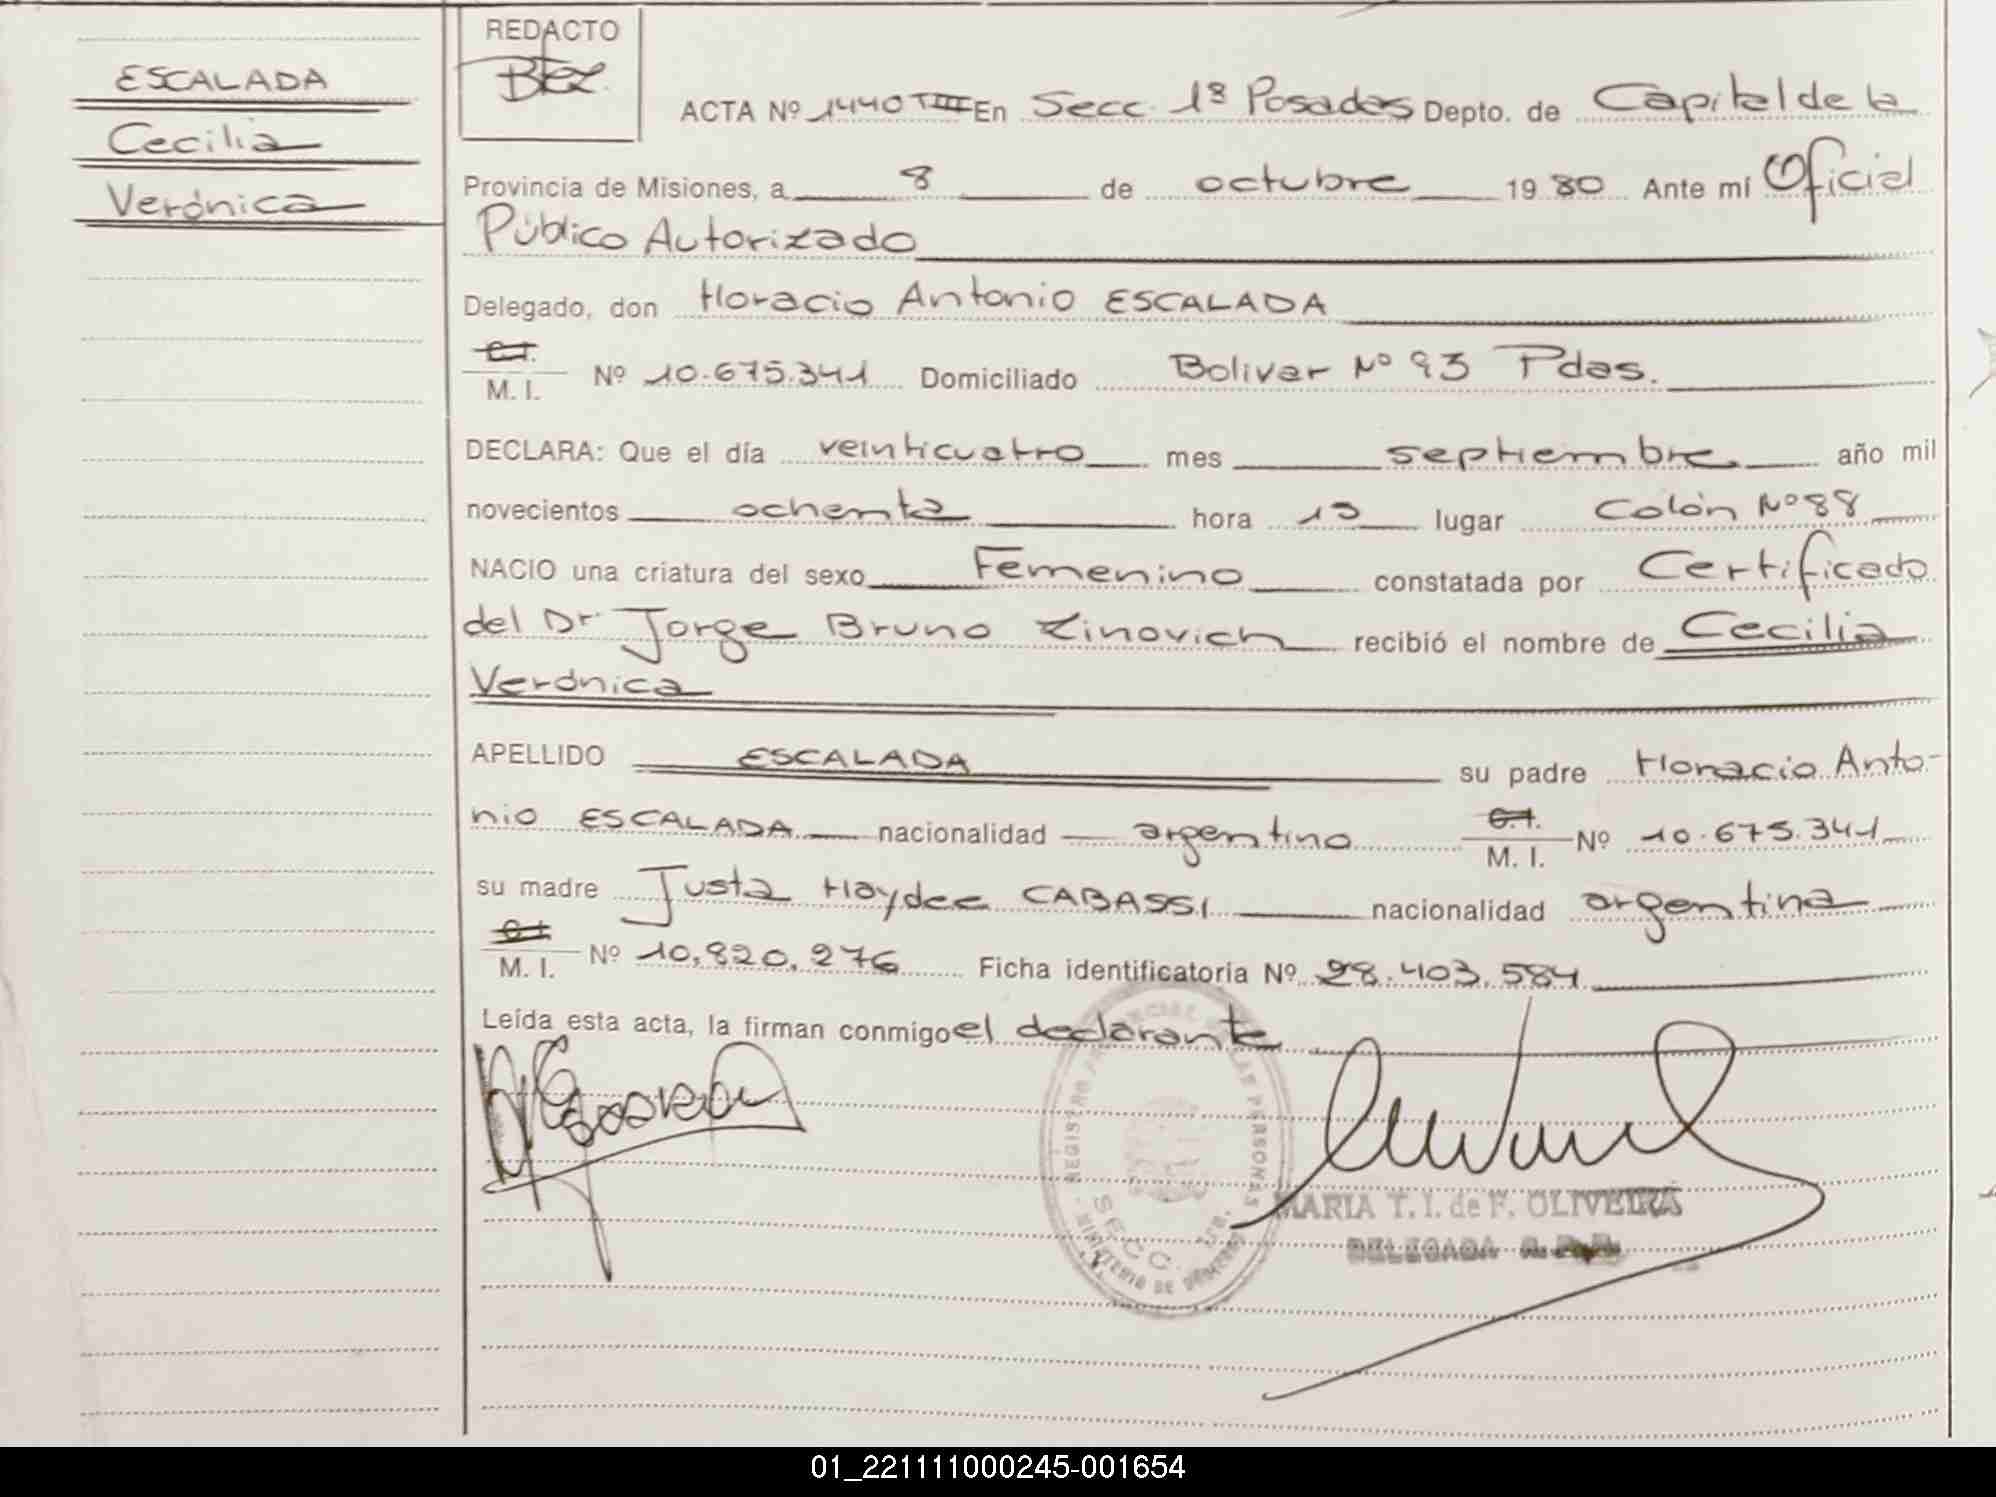 ESCALADA
Cecilia
Verónica
REDACTO
ACTA Nº 1440 TIII En Secc. 1ª Posadas Depto. de Capital de la
Provincia de Misiones, a 8 de octubre 1980 Ante mí Oficial
Público Autorizado
Delegado, don Horacio Antonio ESCALADA
C.I.
M. I. Nº 10.675.341 Domiciliado Bolivar Nº 93 Pdas.
DECLARA: Que el día veinticuatro mes septiembre año mil
novecientos ochenta hora lugar Colón Nº 88
NACIO una criatura del sexo Femenino constatada por Certificado
del Dr Jorge Bruno Zinovich recibió el nombre de Cecilia
Verónica
APELLIDO ESCALADA su padre Horacio Anto-
nio ESCALADA nacionalidad argentino C.I. M. I. Nº 10.675.341
su madre Justa Haydee CABASSI nacionalidad argentina
C.I.
M. I. Nº 10.820.276 Ficha identificatoria Nº 28.403.584
Leída esta acta, la firman conmigo el declarante
REGISTRO PROVINCIAL DE LAS PERSONAS
SECC. 1RA.
MINISTERIO DE GOBIERNO
MARIA T. I. de F. OLIVEIRA
DELEGADA
01_221111000245-001654